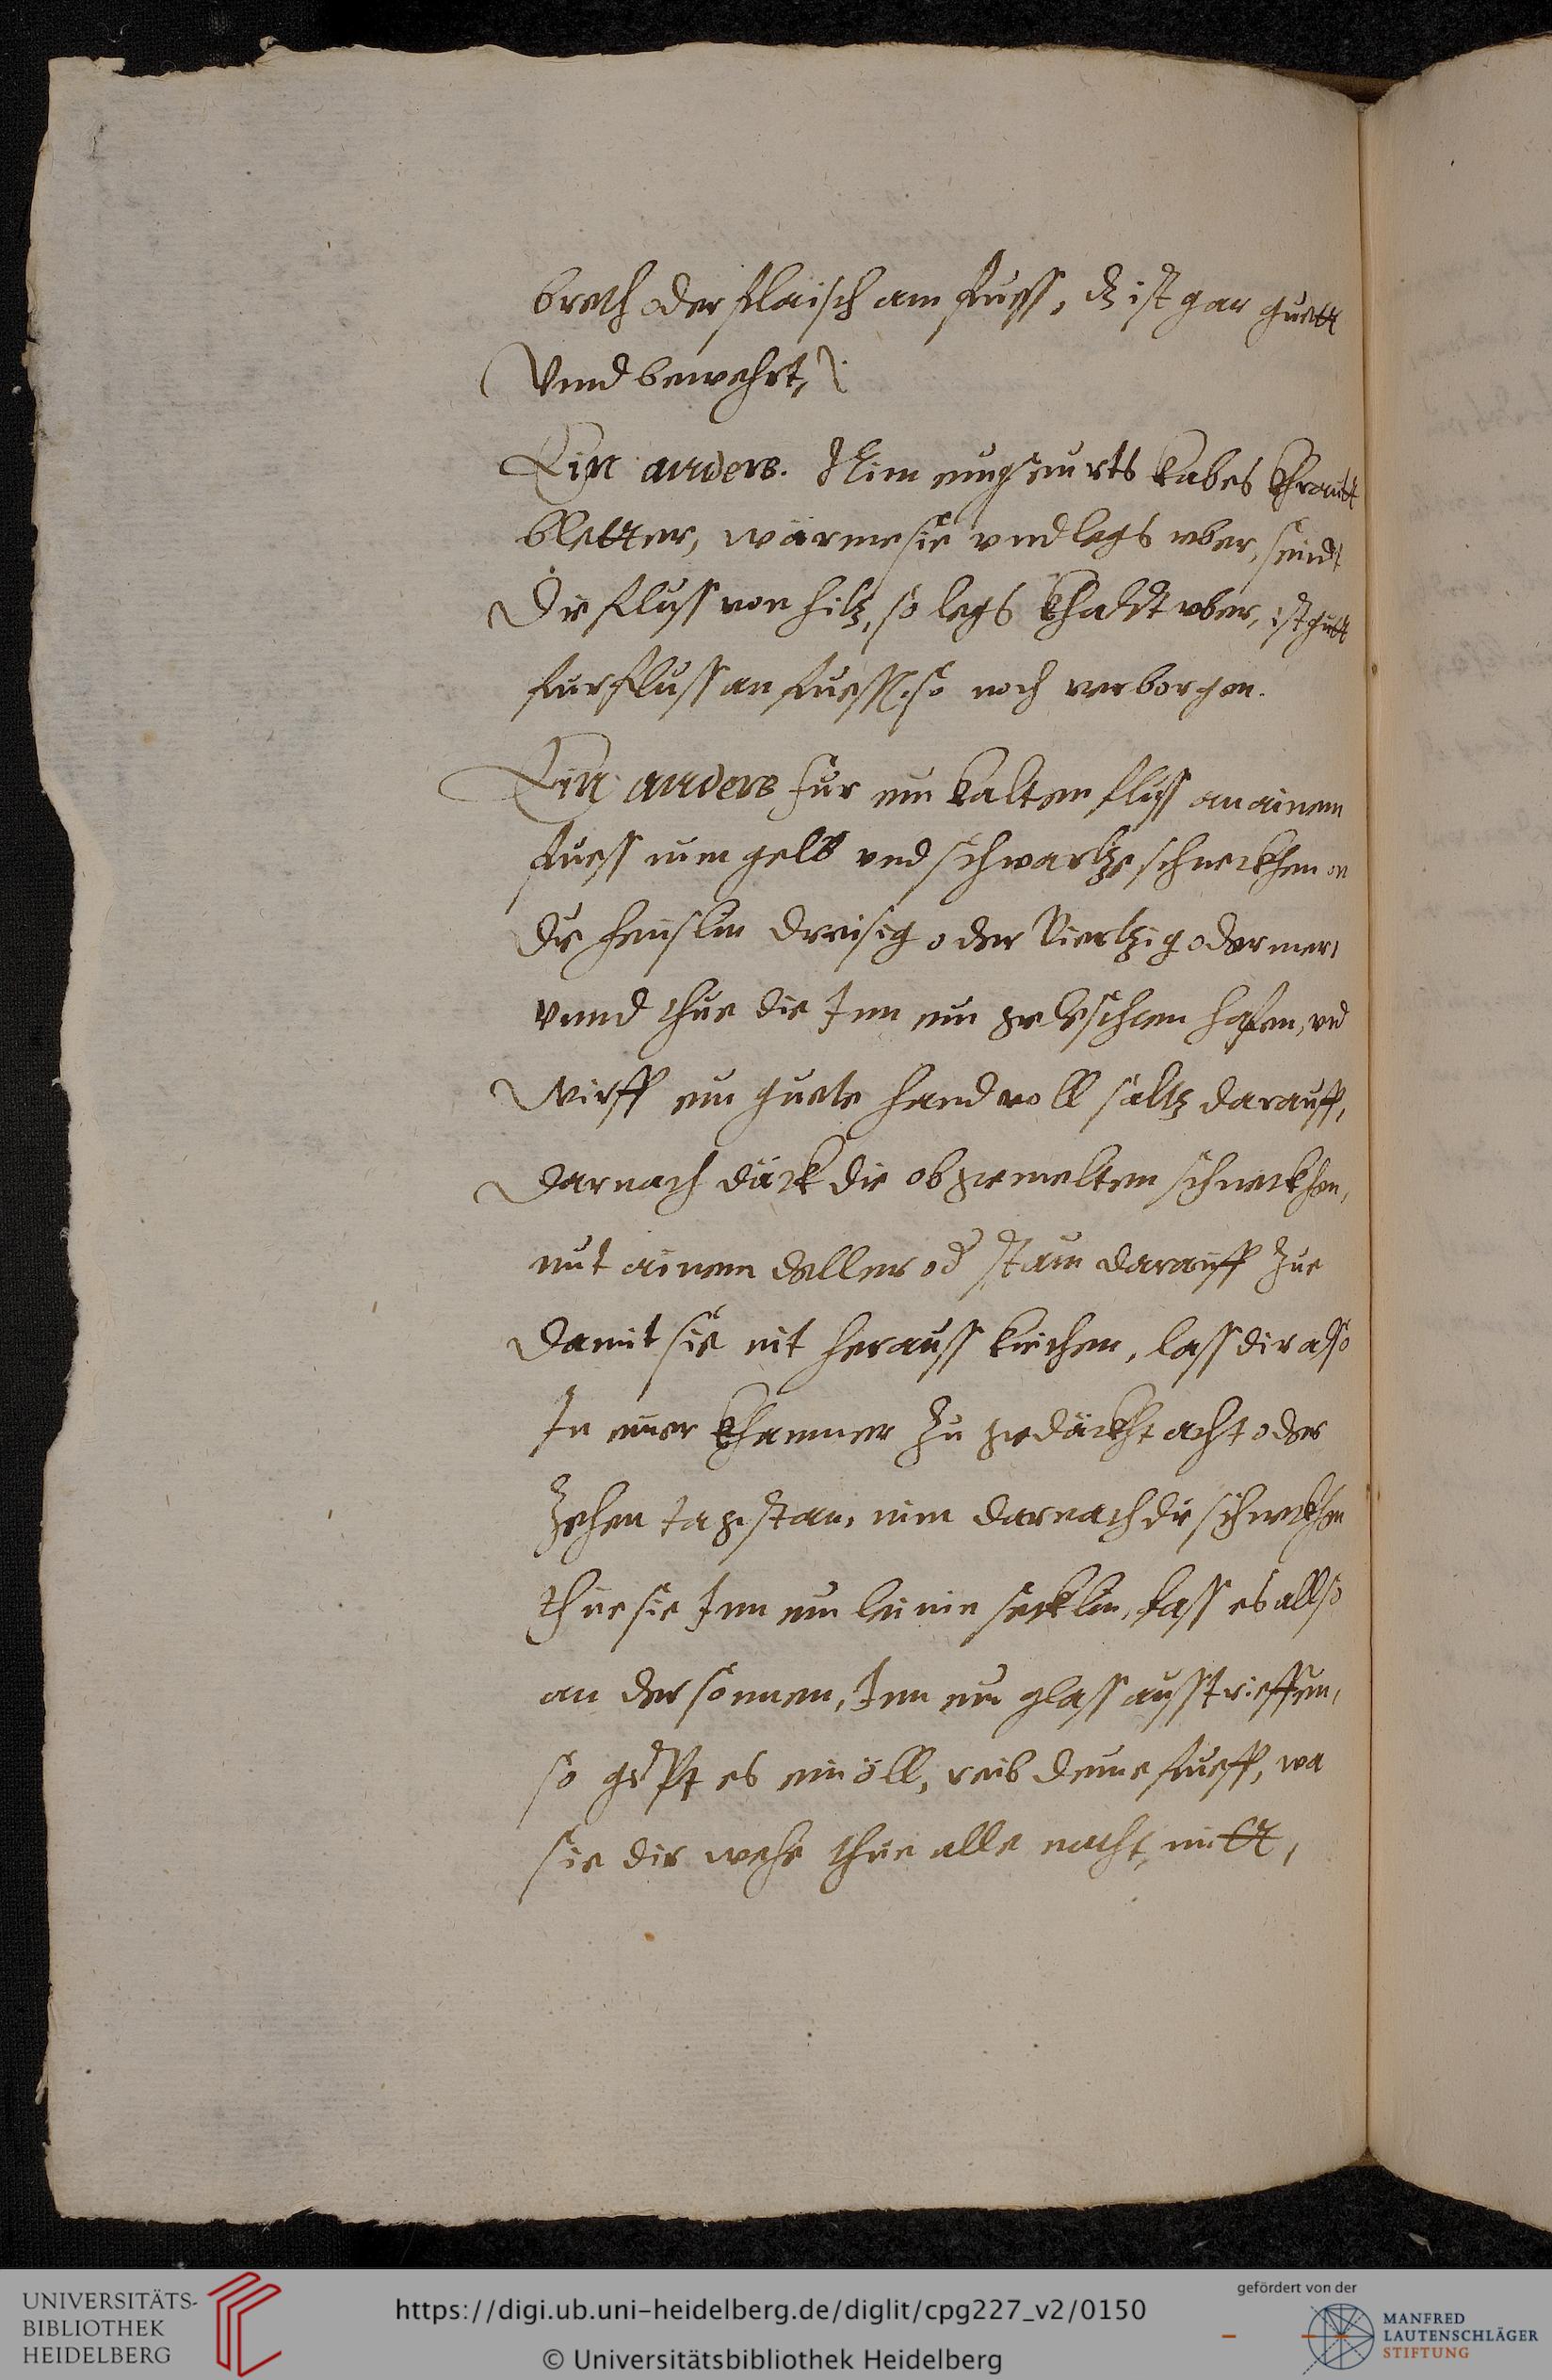 breth oder flaisch am fuess, dz ist gar guett
Vnnd bewehrt,
Ein anders. Nim kabes khrautt
bletter, wärme sie vnd legs vber, seindt
Die fluss von hitz, so legs khaldt vber, ist guett
fur fluss an fuessen so noch verborgen.
Ein anders fur ein kalten fluss an ainem
fuess nim gelb vnd schwartze schneckhen on
die heuslin dreisig oder Viertzig oder mer,
vnnd thue die Inn ein hafen, vnd
Wirff ein guete handvoll saltz darauff,
Darnach däck die obgemelten schneckhen,
mit ainem deller od stain darauff zue
Damit sie nit herauss kriechen, lass dir also
In einer khammer zu gedäckht acht oder
Zehen tag stan, nim darnach die schneckhen
thue sie Inn ein leinin secklin, lass es allso
an der sonnen, Inn ein glass ausstrieffen,
so gipt es ein öll, reib deine fuess, wa
sie dir wehe thue alle nacht, mitt,
UNIVERSITÄTS-
BIBLIOTHEK
HEIDELBERG
https://digi.ub.uni-heidelberg.de/diglit/cpg227_v2/0150
© Universitätsbibliothek Heidelberg
gefördert von der
MANFRED
LAUTENSCHLÄGER
STIFTUNG